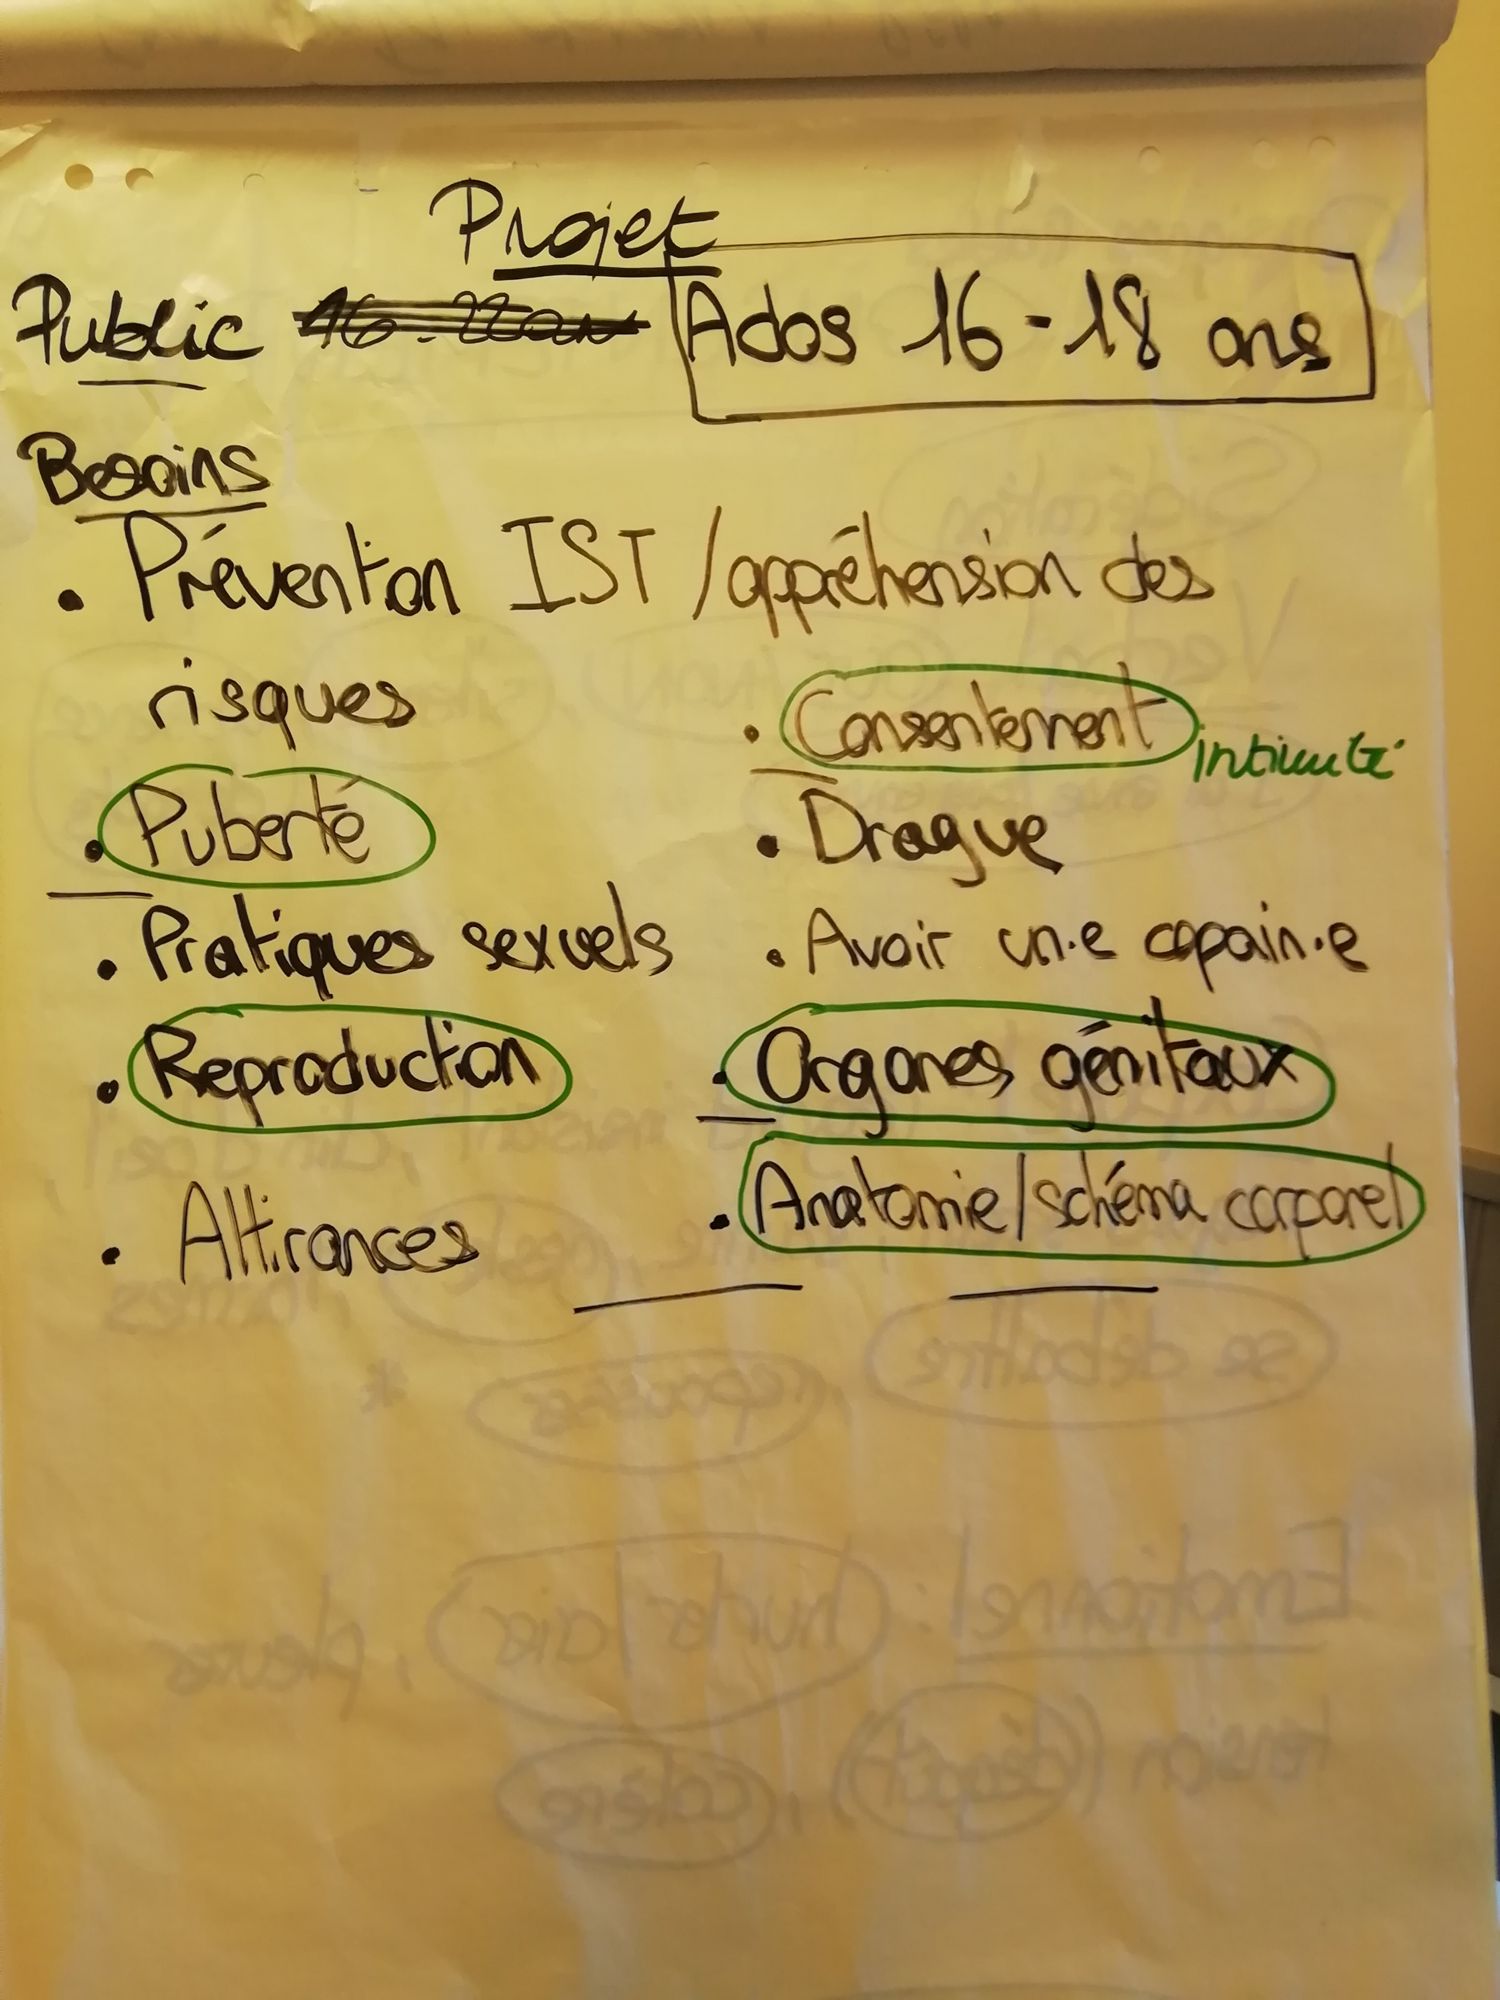 Projet
Public 16-22 ans Ados 16-18 ans
Besoins
• Prévention IST / appréhension des
risques
• Puberté
• Pratiques sexuels
• Reproduction
• Attirances
• Consentement intimité
• Drague
• Avoir un.e copain.e
• Organes génitaux
• Anatomie/schéma corporel
Emotionnel :
pleurs
tension
colère
se débattre
repousser *